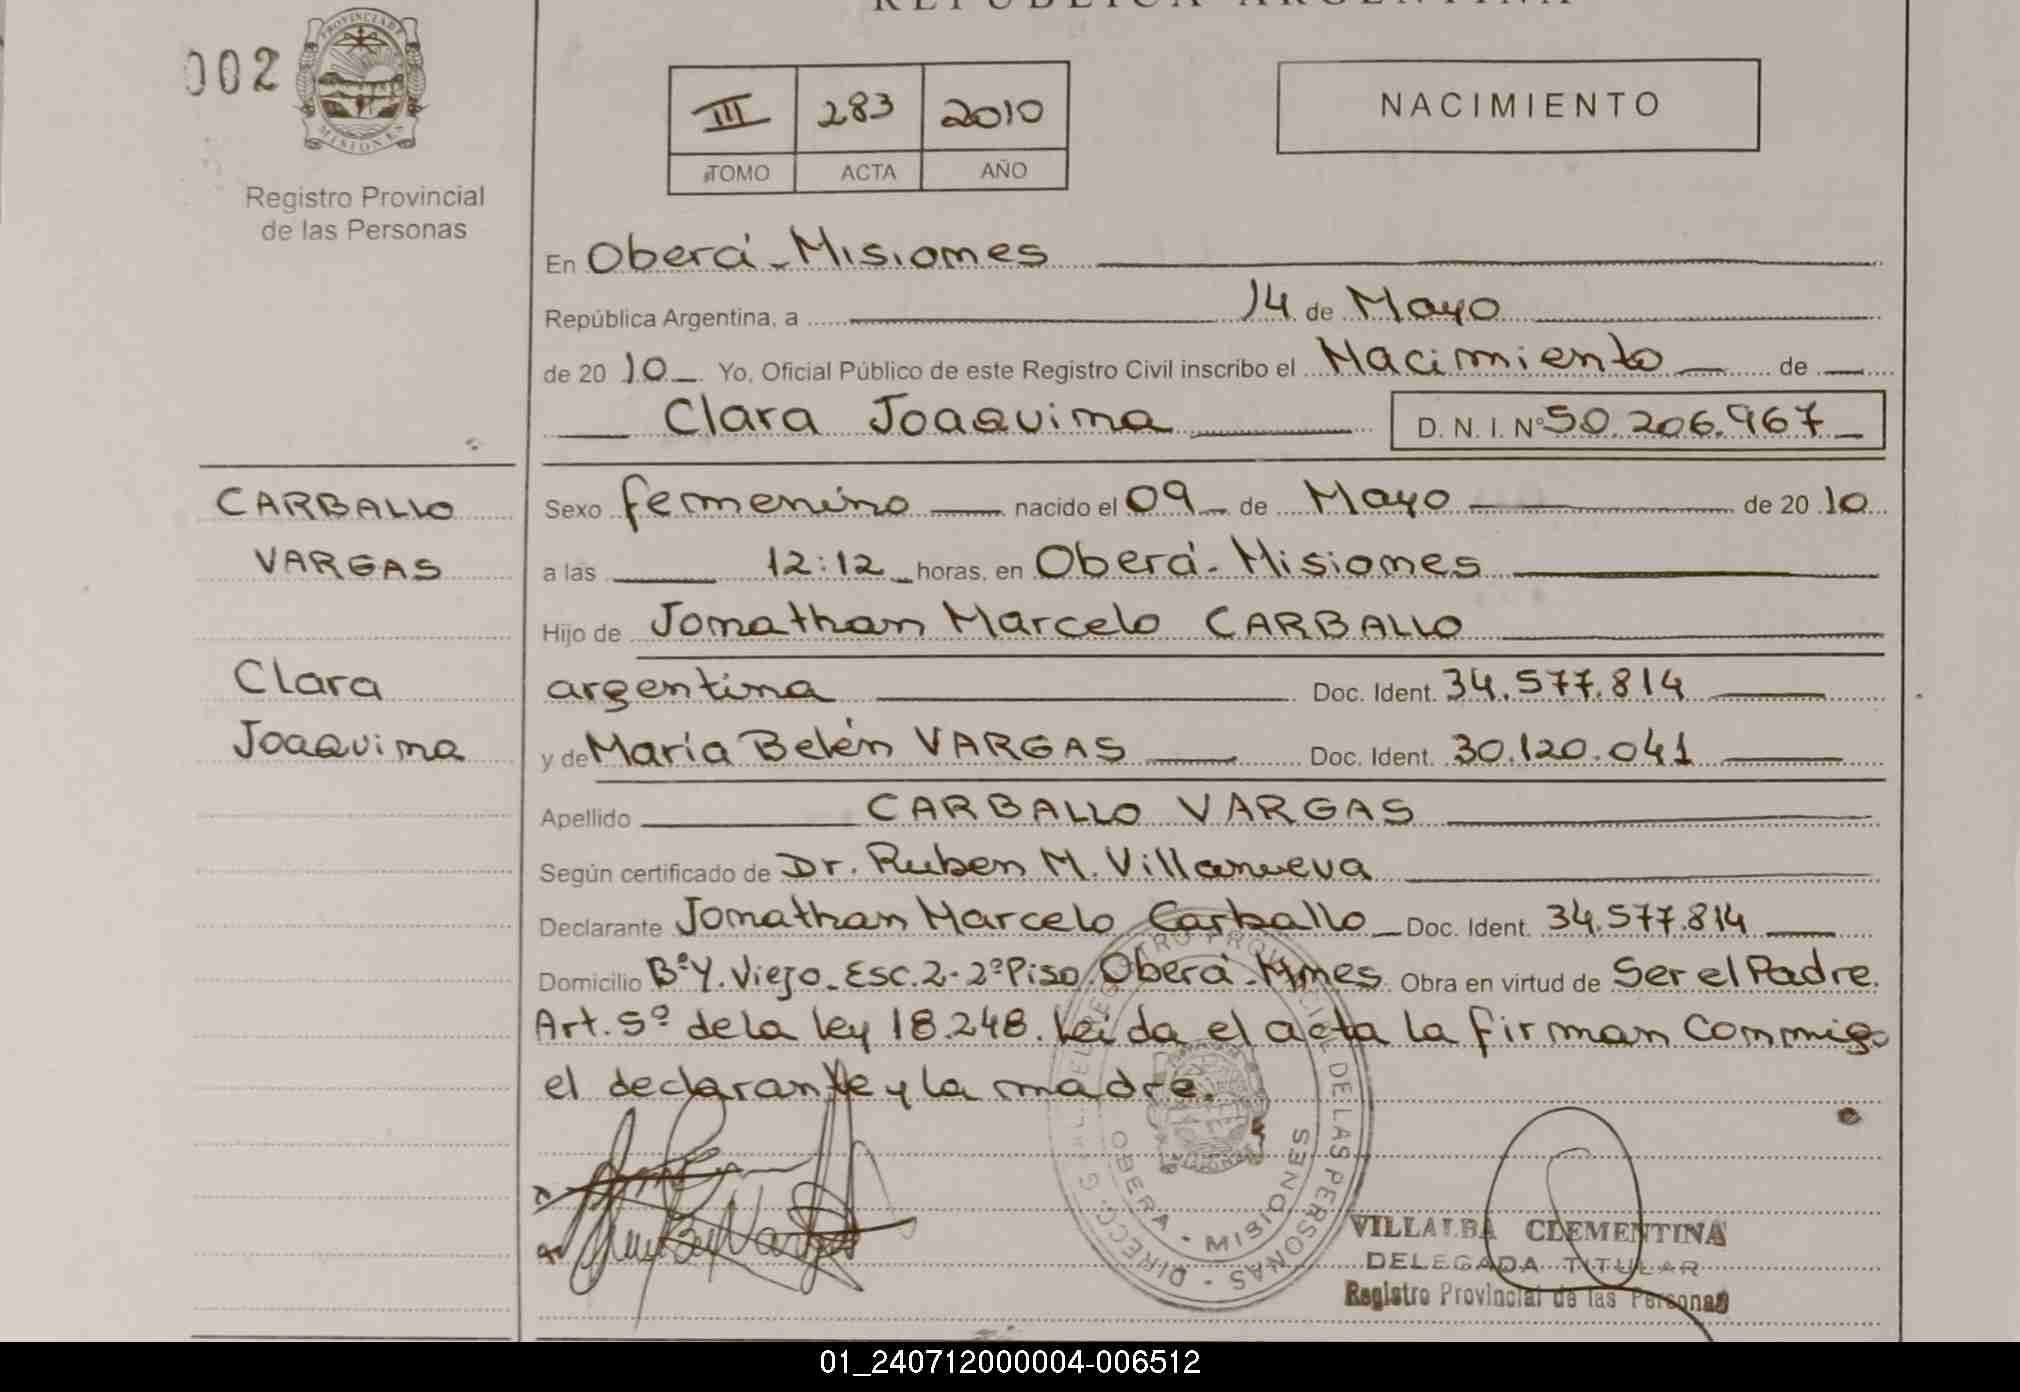 REPÚBLICA ARGENTINA
002
PROVINCIA DE
MISIONES
Registro Provincial
de las Personas
III 283 2010
TOMO ACTA AÑO
NACIMIENTO
En Oberá - Misiones
República Argentina, a 14 de Mayo
de 2010 Yo, Oficial Público de este Registro Civil inscribo el Nacimiento de
Clara Joaquina D. N. I. Nº 50.206.967
CARBALLO
VARGAS
Clara
Joaquina
Sexo femenino nacido el 09 de Mayo de 2010
a las 12:12 horas, en Oberá - Misiones
Hijo de Jonathan Marcelo CARBALLO
argentina Doc. Ident. 34.577.814
y de María Belén VARGAS Doc. Ident. 30.120.041
Apellido CARBALLO VARGAS
Según certificado de Dr. Ruben M. Villanueva
Declarante Jonathan Marcelo Carballo Doc. Ident. 34.577.814
Domicilio Bº Y. Viejo - Esc. 2 - 2º Piso. Oberá - Mnes. Obra en virtud de Ser el Padre.
Art. 5º de la ley 18.248. Leida el acta la firman conmigo
el declarante y la madre.
OBERA - MISIONES
DE LAS PERSONAS
VILLALBA CLEMENTINA
DELEGADA TITULAR
Registro Provincial de las Personas
01_240712000004-006512